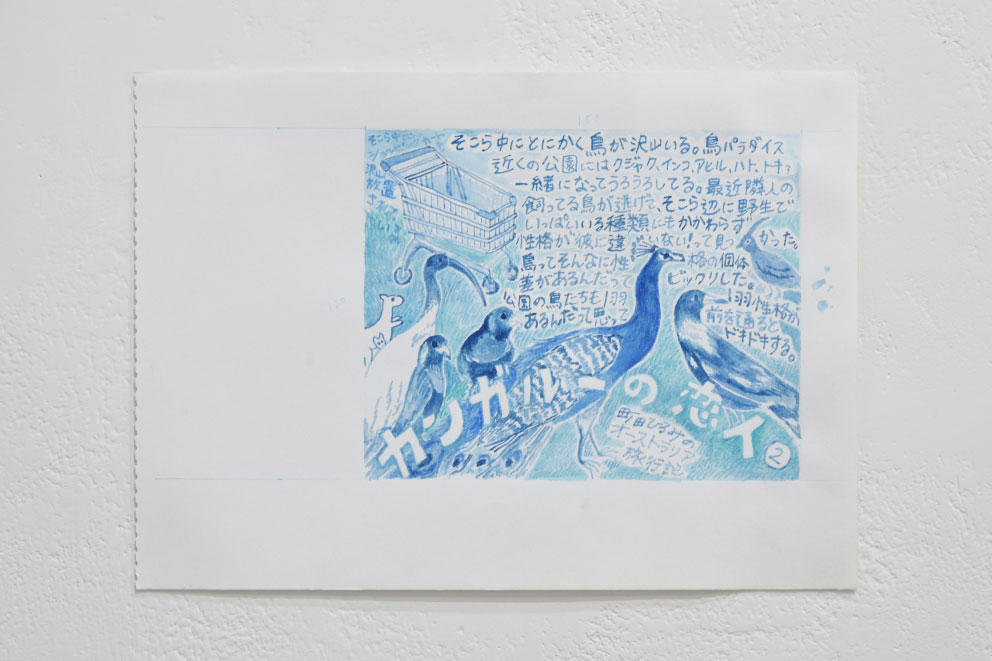 そこら中にとにかく鳥が沢山いる。鳥パラダイス
近くの公園にはクジャク、インコ、アヒル、ハト、トキ、
一緒になってうろうろしてる。最近隣人の
飼ってる鳥が逃げて、そこら辺に野生で
いっぱいいる種類にもかかわらず
性格が彼に違いない!って見つかった。
鳥ってそんなに性格の個体
差があるんだってビックリした。
公園の鳥たちも1羽1羽性格が
あるんだって思って前を通ると
ドキドキする。
そこら中に
沢山
放置
カンガルーの恋人
町田ひろみの
オーストラリア
旅行記
2